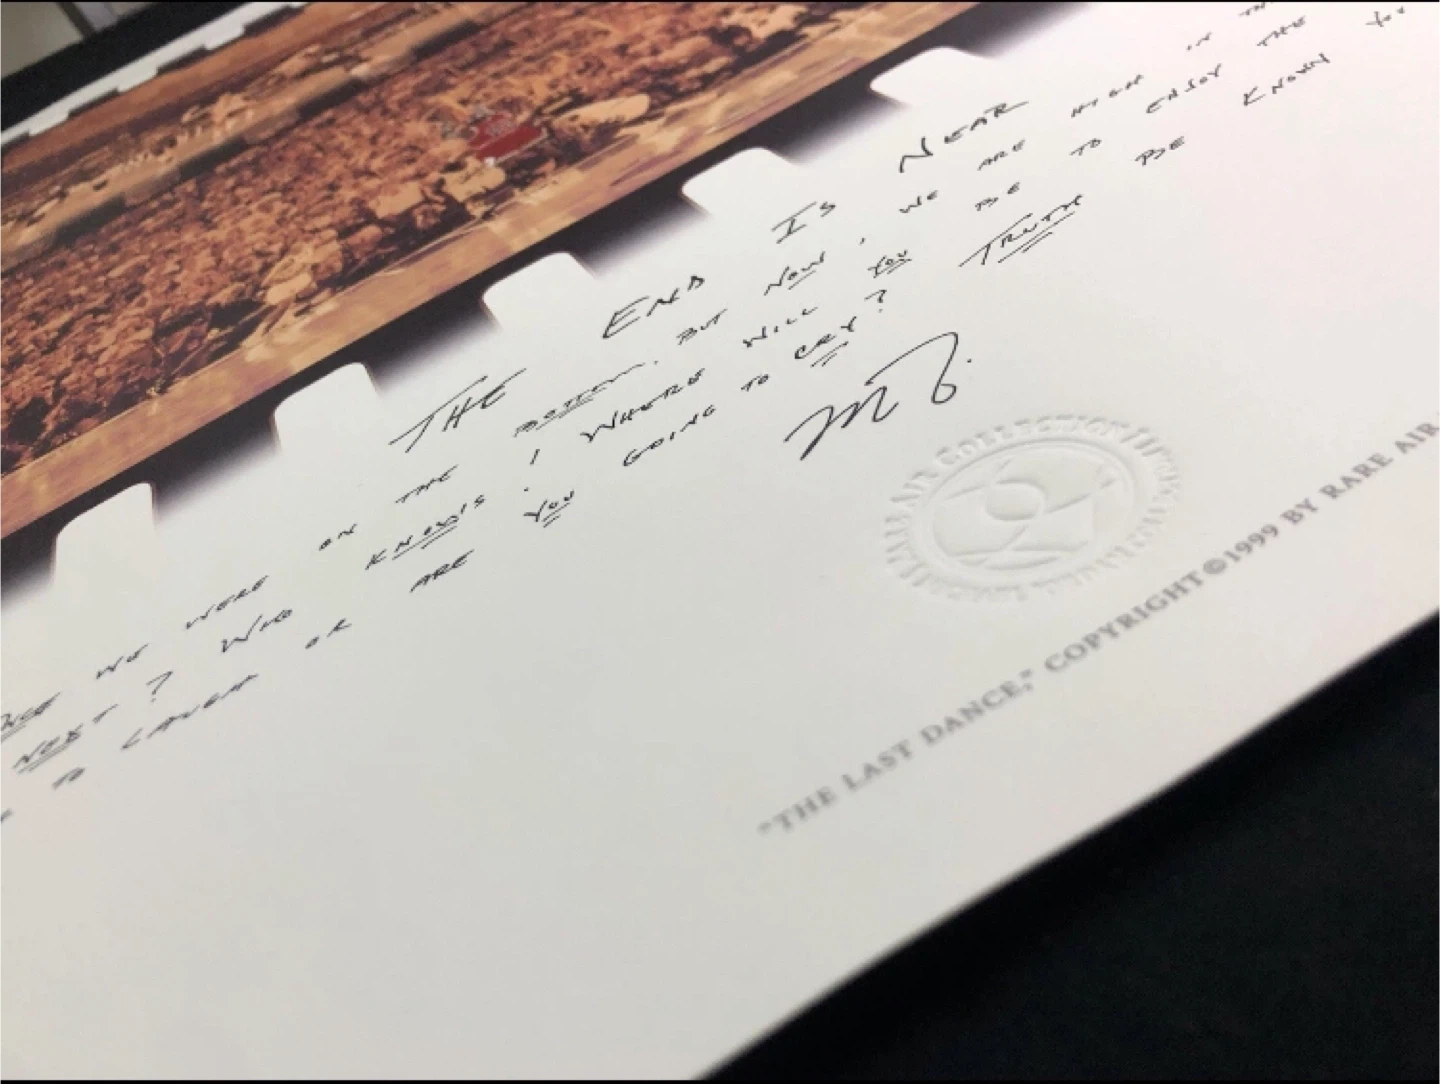 THE END IS NEAR
WE WERE ON THE BOTTOM. BUT NOW, WE ARE HIGH IN
NEXT? WHO KNOWS! WHERE WILL YOU BE TO ENJOY THE
TO LAUGH OR ARE YOU GOING TO CRY? TRUTH BE KNOWN YOU
MJ.
RARE AIR COLLECTION
"THE LAST DANCE," COPYRIGHT ©1999 BY RARE AIR